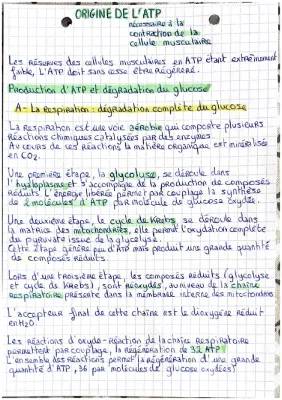 ORIGINE DE L'ATP
nécessaire à la
contraction de la
cellule musculaire
Les réserves des cellules musculaires en ATP étant extrêmement
faible, L'ATP doit sans cesse être régénéré.
Production d'ATP et dégradation du glucose
A - La respiration : dégradation complète du glucose
La respiration est une voie aérobie qui comporte plusieurs
Réactions chimiques catalysées par des enzymes.
Au cours de ces réactions la matière organique est minéralisée
en CO2.
Une première étape, la glycolyse, se déroule dans
l'hyaloplasme et s'accompagne de la production de composés
réduits. L'énergie libérée permet par couplage la synthèse
de 2 molécules d'ATP par molécule de glucose oxydée.
Une deuxième étape, le cycle de Krebs, se déroule dans
la matrice des mitochondries, elle permet l'oxydation complète
du pyruvate issue de la glycolyse.
Cette étape génère peu d'ATP mais produit une grande quantité
de composés réduits.
Lors d'une troisième étape, les composés réduits (glycolyse
et cycle de Krebs), sont réoxydés, au niveau de la chaîne
respiratoire présente dans la membrane interne des mitochondries
L'accepteur final de cette chaîne est le dioxygène réduit
en H2O.
Les réactions d'oxydo-réaction de la chaîne respiratoire
permettent par couplage, la régénération de 32 ATP
L'ensemble des réactions permet la régénération d'une grande
quantité d'ATP, 36 par molécules de glucose oxydées)